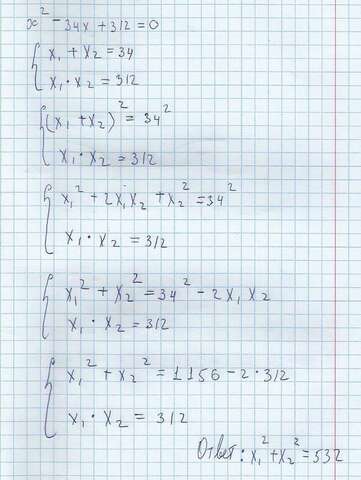 x² - 34x + 312 = 0
x₁ + x₂ = 34
x₁ · x₂ = 312
(x₁ + x₂)² = 34²
x₁ · x₂ = 312
x₁² + 2x₁x₂ + x₂² = 34²
x₁ · x₂ = 312
x₁² + x₂² = 34² - 2x₁ x₂
x₁ · x₂ = 312
x₁² + x₂² = 1156 - 2 · 312
x₁ · x₂ = 312
Ответ: x₁² + x₂² = 532